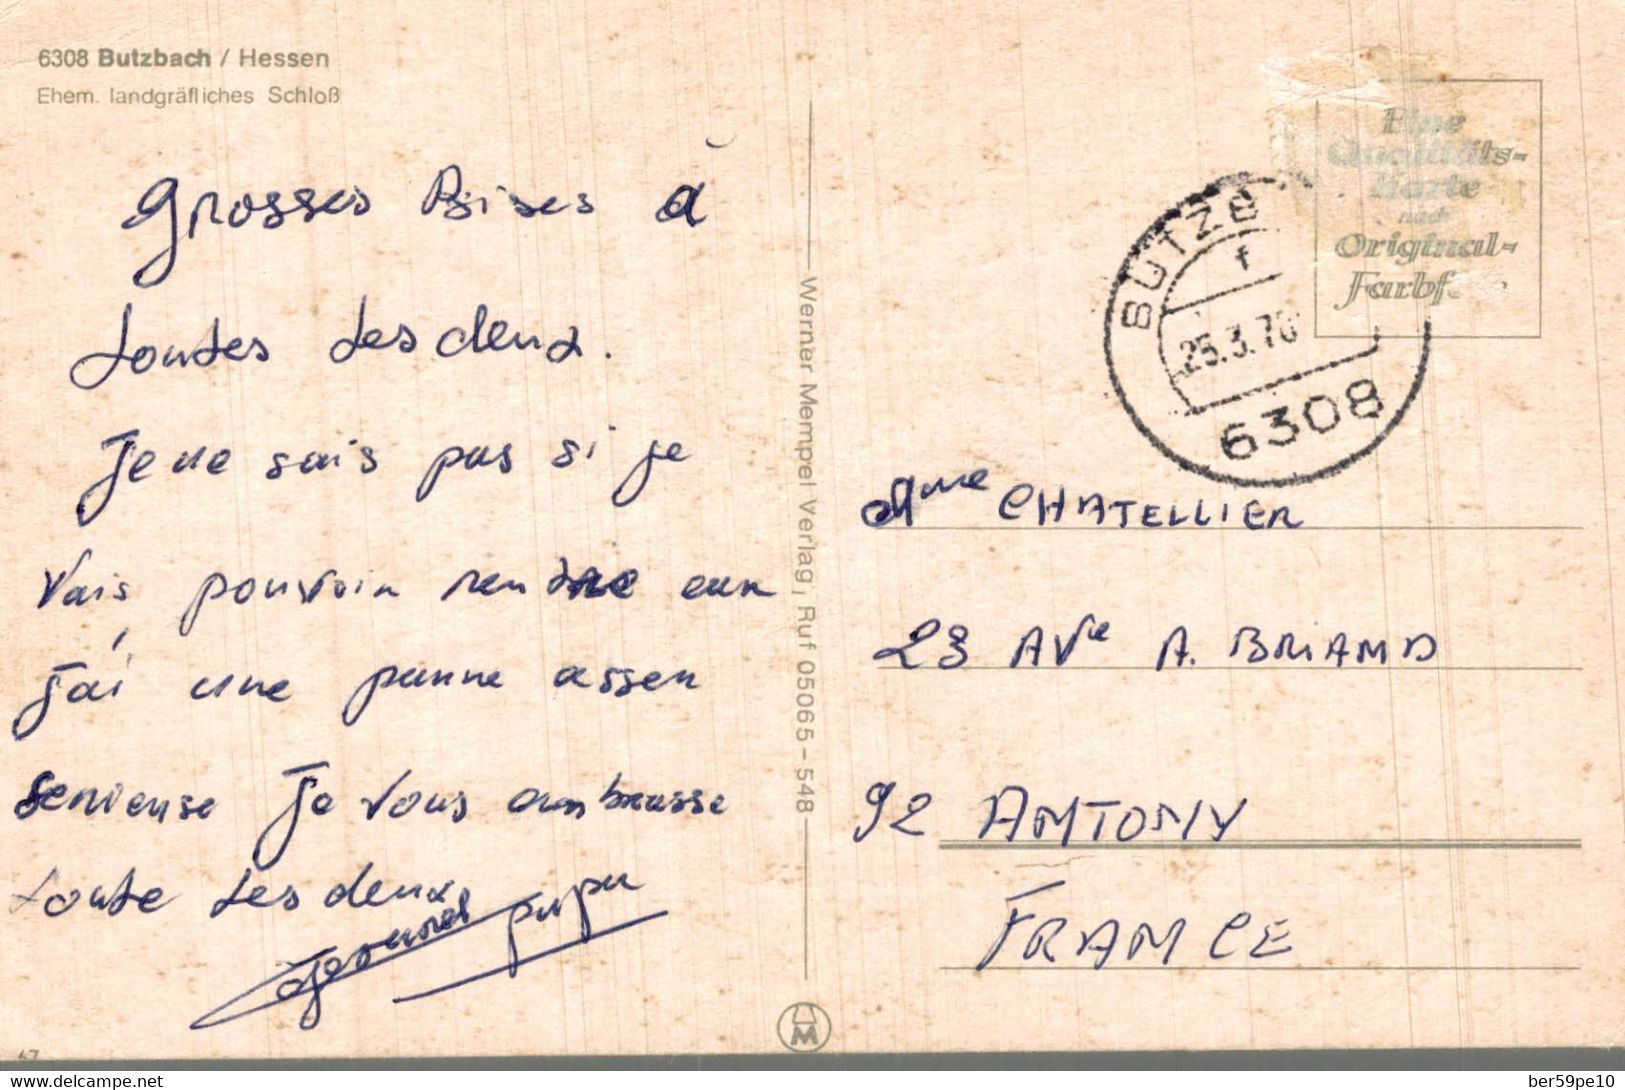 6308 Butzbach / Hessen
Ehem. landgräfliches Schloß
Grosses Bises à
toutes les deux.
Je ne sais pas si je
vais pouvoir rentrée car
j'ai une panne assen
serieuse Je vous ambrasse
toute les deux
papa
Werner Mempel Verlag, Ruf 05065-548
Eine
Qualitäts-
Karte
nach
Original-
Farbf
BUTZB
f
25.3.76
6308
Mme CHATELLIER
23 AVe A. BRIAND
92 ANTONY
FRANCE
M
67
delcampe.net
ber59pe10